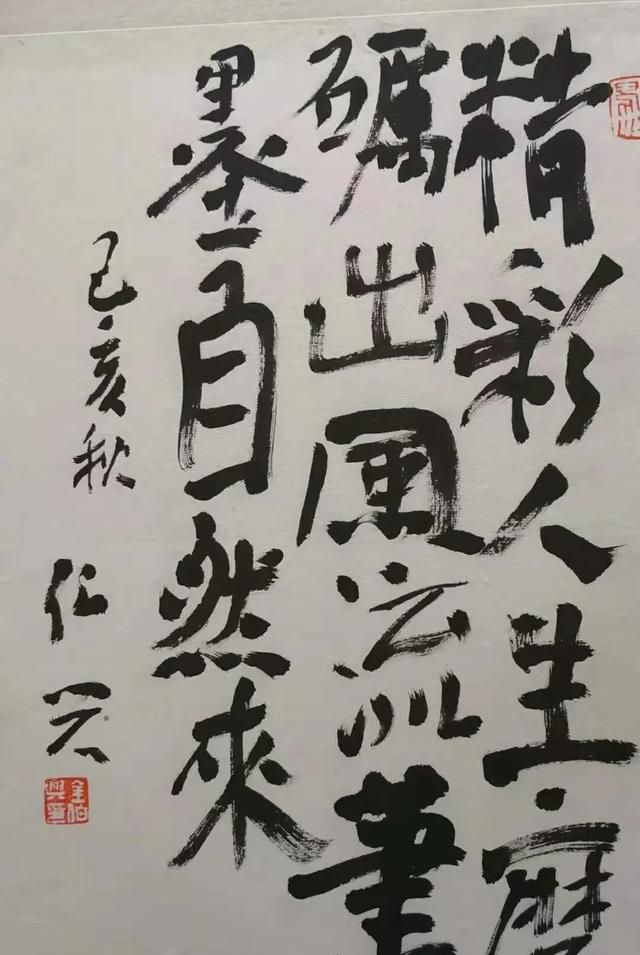 精彩人生磨
礪出風流筆
墨自然來
己亥秋